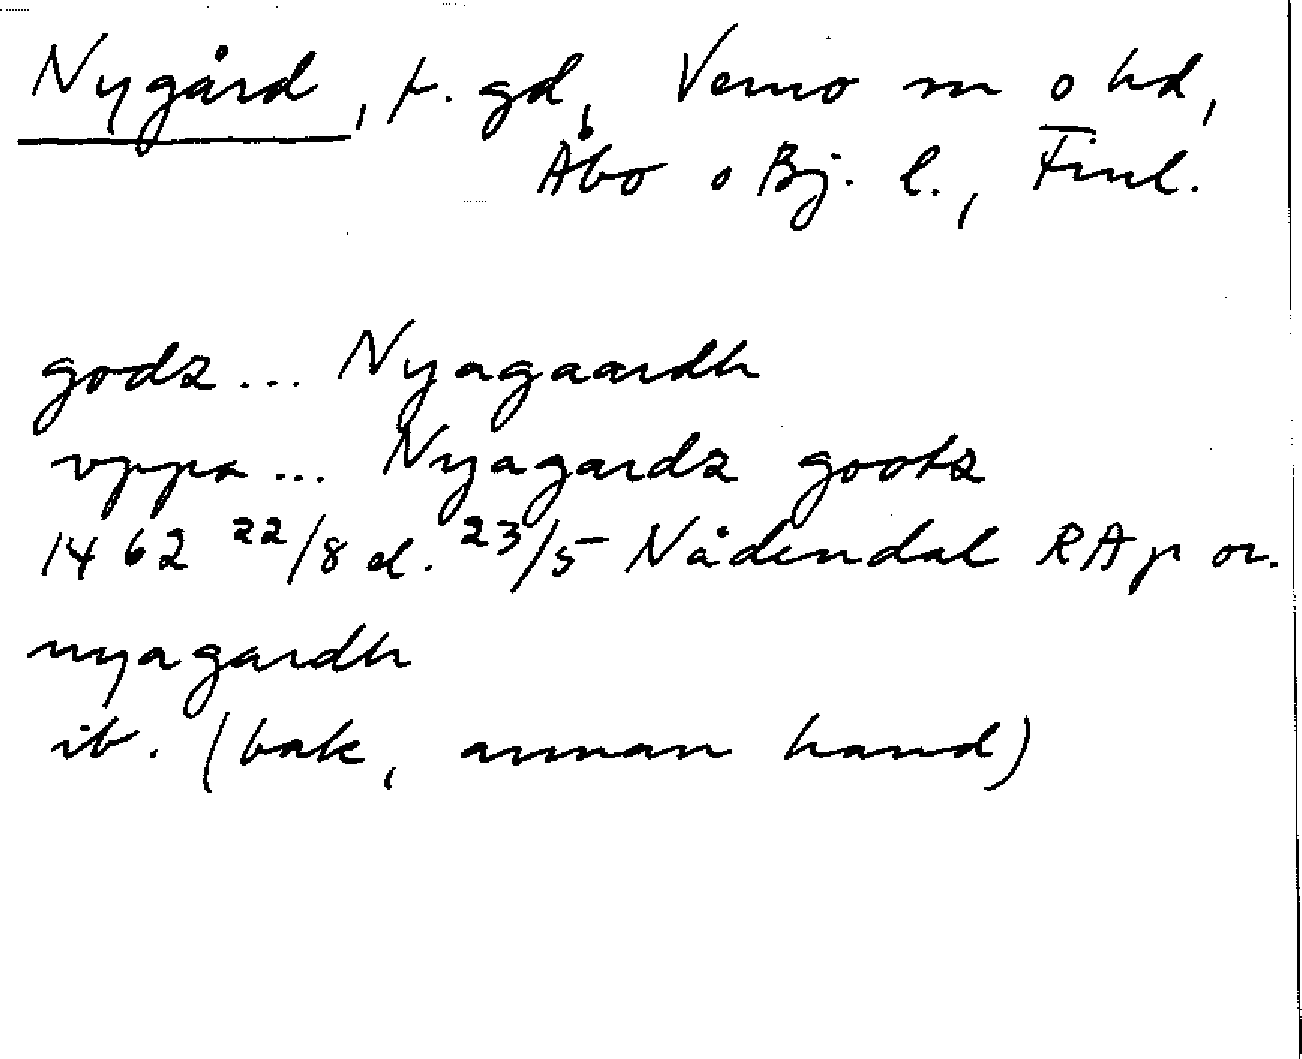 Nygård, t. gd, Vemo sn o hd,
Åbo o Bj. l., Finl.
godz ... Nyagaardh
vppa ... Nyagardz godz
1462 22/8 el. 23/5 Nådendal RAp or.
nyagardh
ib. (bak, annan hand)